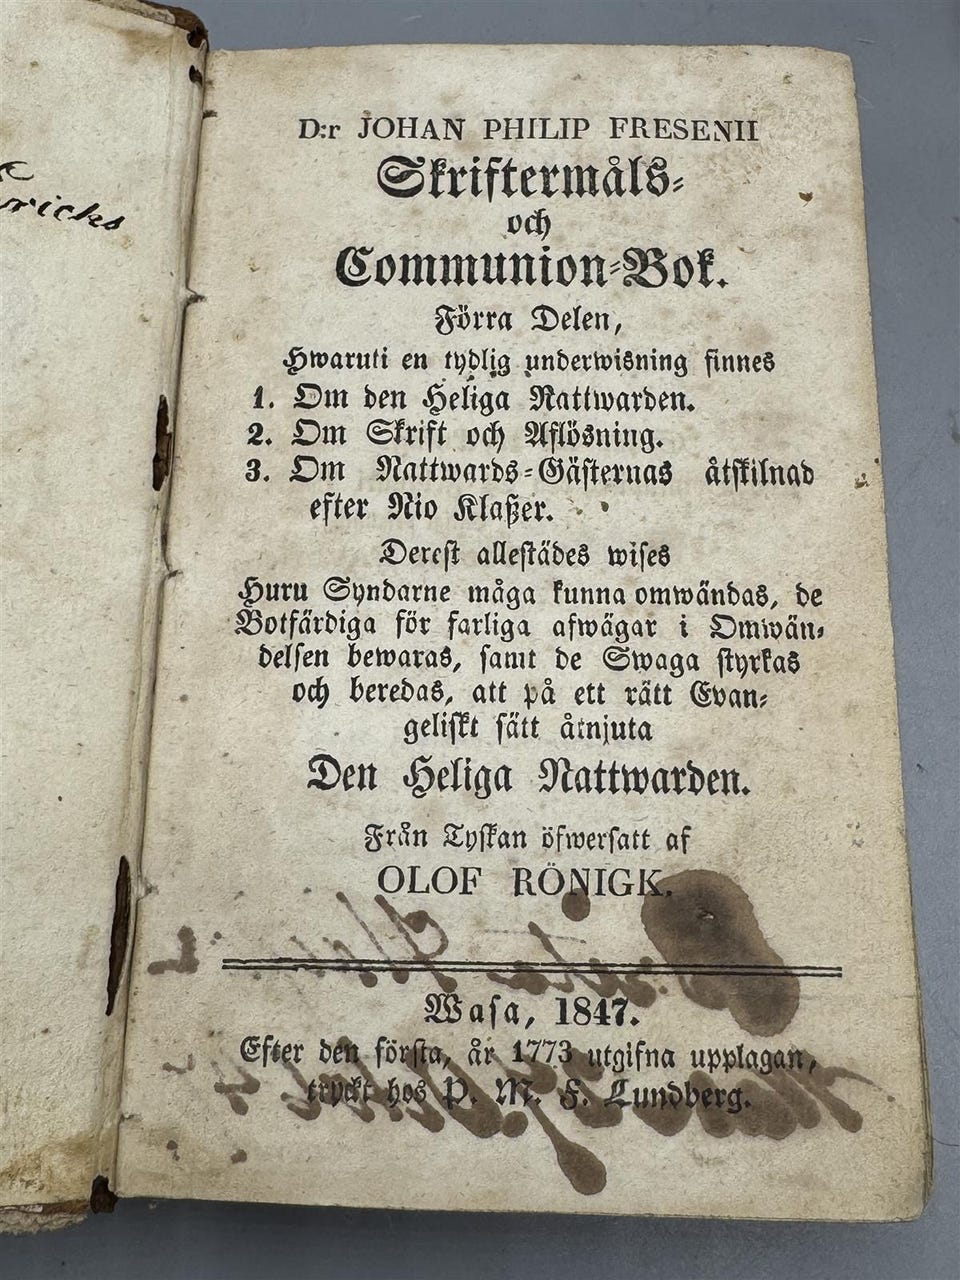 ricks
D:r JOHAN PHILIP FRESENII
Skriftermåls-
och
Communion-Bok.
Förra Delen,
Hwaruti en tydlig underwisning finnes
1. Om den Heliga Nattwarden.
2. Om Skrift och Aflösning.
3. Om Nattwards-Gästernas åtskilnad
efter Nio Klaßer.
Derest allestädes wises
Huru Syndarne måga kunna omwändas, de
Botfärdiga för farliga afwägar i Omwän-
delsen bewaras, samt de Swaga styrkas
och beredas, att på ett rätt Evan-
geliskt sätt åtnjuta
Den Heliga Nattwarden.
Från Tyskan öfwersatt af
OLOF RÖNIGK.
Wasa, 1847.
Efter den första, år 1773 utgifna upplagan,
tryckt hos P. M. F. Lundberg.